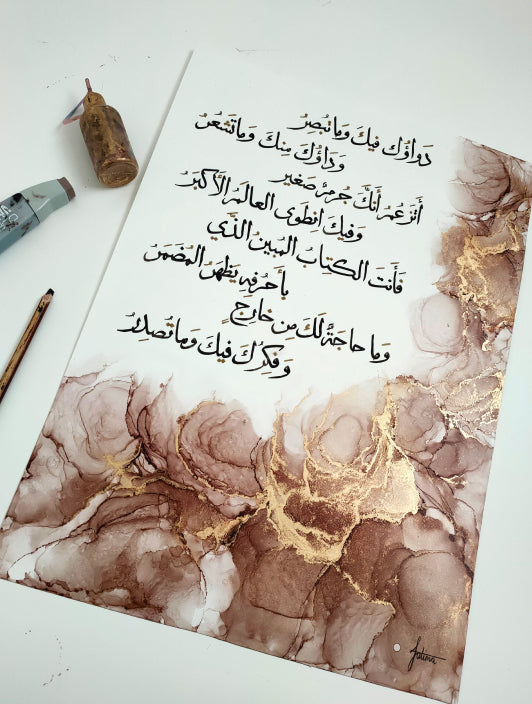 دَواؤُكَ فيكَ وَما تُبصِرُ
وَدَاؤُكَ مِنكَ وَما تَشعُرُ
أَتَزعُمُ أَنَّكَ جُرمٌ صَغير
وَفيكَ اِنطَوى العالَمُ الأَكبَرُ
فَأَنتَ الكِتابُ المُبينُ الَّذي
بِأَحرُفِهِ يَظهَرُ المُضمَرُ
وَما حاجَةٌ لَكَ مِن خارِجٍ
وَفِكرُكَ فيكَ وَما تُصدِرُ
Fatima